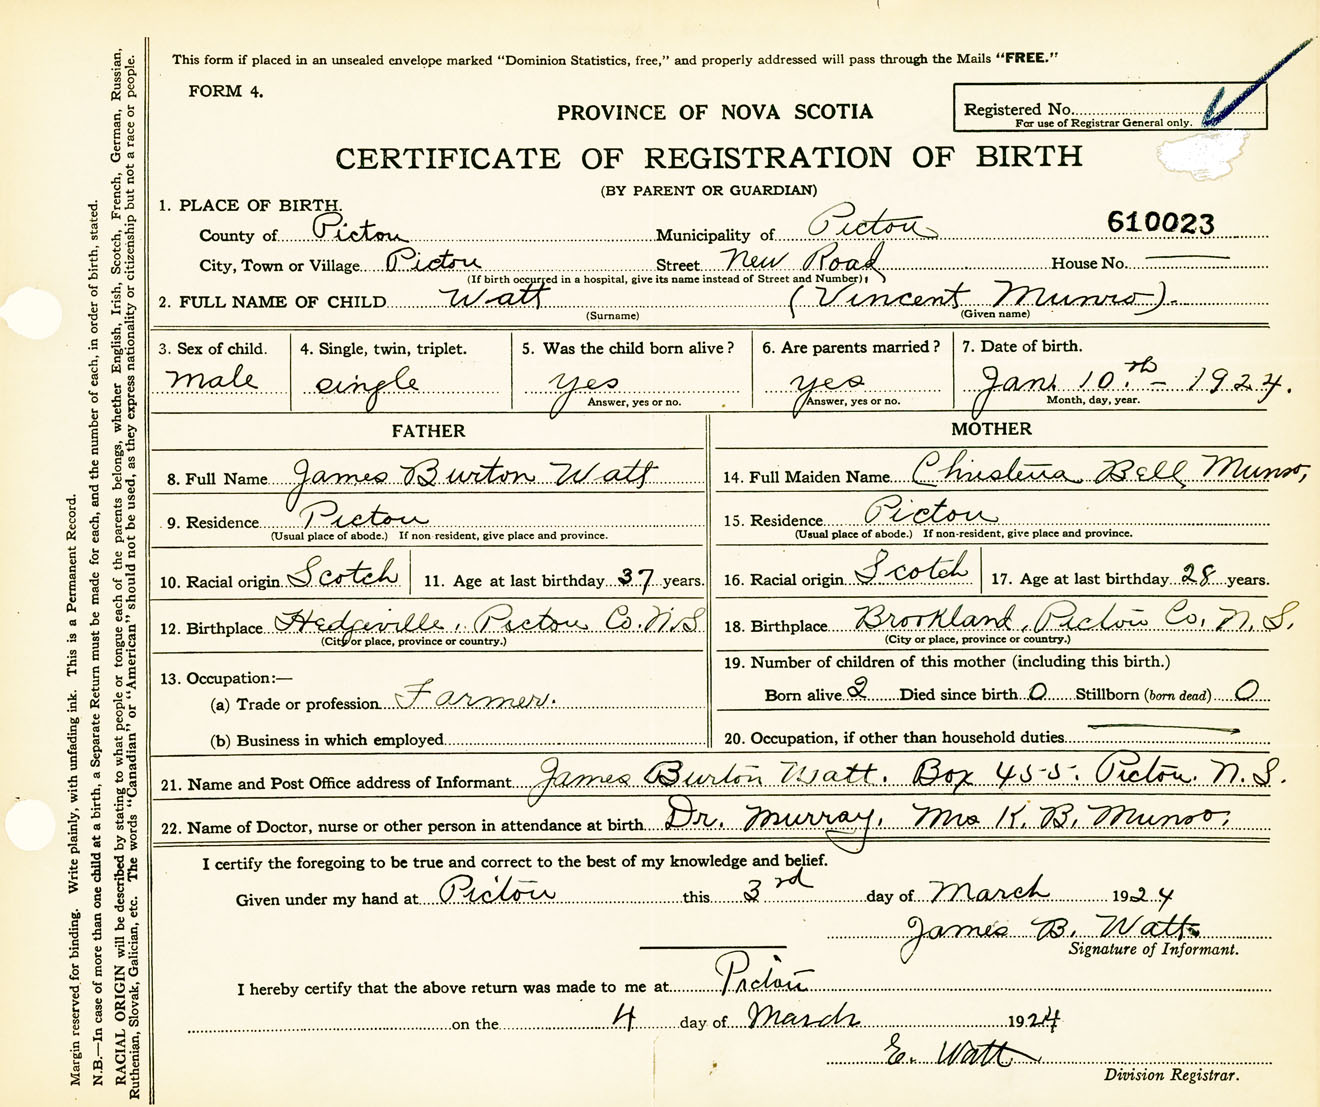 This form if placed in an unsealed envelope marked "Dominion Statistics, free," and properly addressed will pass through the Mails "FREE."
FORM 4.
PROVINCE OF NOVA SCOTIA
Registered No.
For use of Registrar General only.
CERTIFICATE OF REGISTRATION OF BIRTH
(BY PARENT OR GUARDIAN)
1. PLACE OF BIRTH.
610023
County of Pictou Municipality of Pictou
City, Town or Village Pictou Street New Road House No. —
(If birth occurred in a hospital, give its name instead of Street and Number)
2. FULL NAME OF CHILD Watt (Vincent Munro).
(Surname) (Given name)
3. Sex of child. 4. Single, twin, triplet. 5. Was the child born alive? 6. Are parents married? 7. Date of birth.
Male single yes yes Jan. 10.th – 1924.
Answer, yes or no. Answer, yes or no. Month, day, year.
FATHER MOTHER
8. Full Name James Burton Watt 14. Full Maiden Name Christena Bell Munro,
9. Residence Pictou 15. Residence Pictou
(Usual place of abode.) If non-resident, give place and province. (Usual place of abode.) If non-resident, give place and province.
10. Racial origin Scotch 11. Age at last birthday 37 years. 16. Racial origin Scotch 17. Age at last birthday 28 years.
12. Birthplace Hedgeville, Pictou Co. N.S 18. Birthplace Brookland, Pictou Co, N.S.
(City or place, province or country.) (City or place, province or country.)
13. Occupation:— 19. Number of children of this mother (including this birth.)
(a) Trade or profession Farmer. Born alive 2 Died since birth 0 Stillborn (born dead) 0
(b) Business in which employed 20. Occupation, if other than household duties —
21. Name and Post Office address of Informant James Burton Watt. Box 455. Pictou. N.S.
22. Name of Doctor, nurse or other person in attendance at birth Dr. Murray. Mrs K. B. Munro.
I certify the foregoing to be true and correct to the best of my knowledge and belief.
Given under my hand at Pictou this 3rd day of March 1924
James B. Watt
Signature of Informant.
I hereby certify that the above return was made to me at Pictou
on the 4 day of March 1924
E. Watt
Division Registrar.
Margin reserved for binding. Write plainly, with unfading ink. This is a Permanent Record.
N.B.—In case of more than one child at a birth, a Separate Return must be made for each, and the number of each, in order of birth, stated.
RACIAL ORIGIN will be described by stating to what people or tongue each of the parents belongs, whether English, Irish, Scotch, French, German, Russian,
Ruthenian, Slovak, Galician, etc. The words "Canadian" or "American" should not be used, as they express nationality or citizenship but not a race or people.